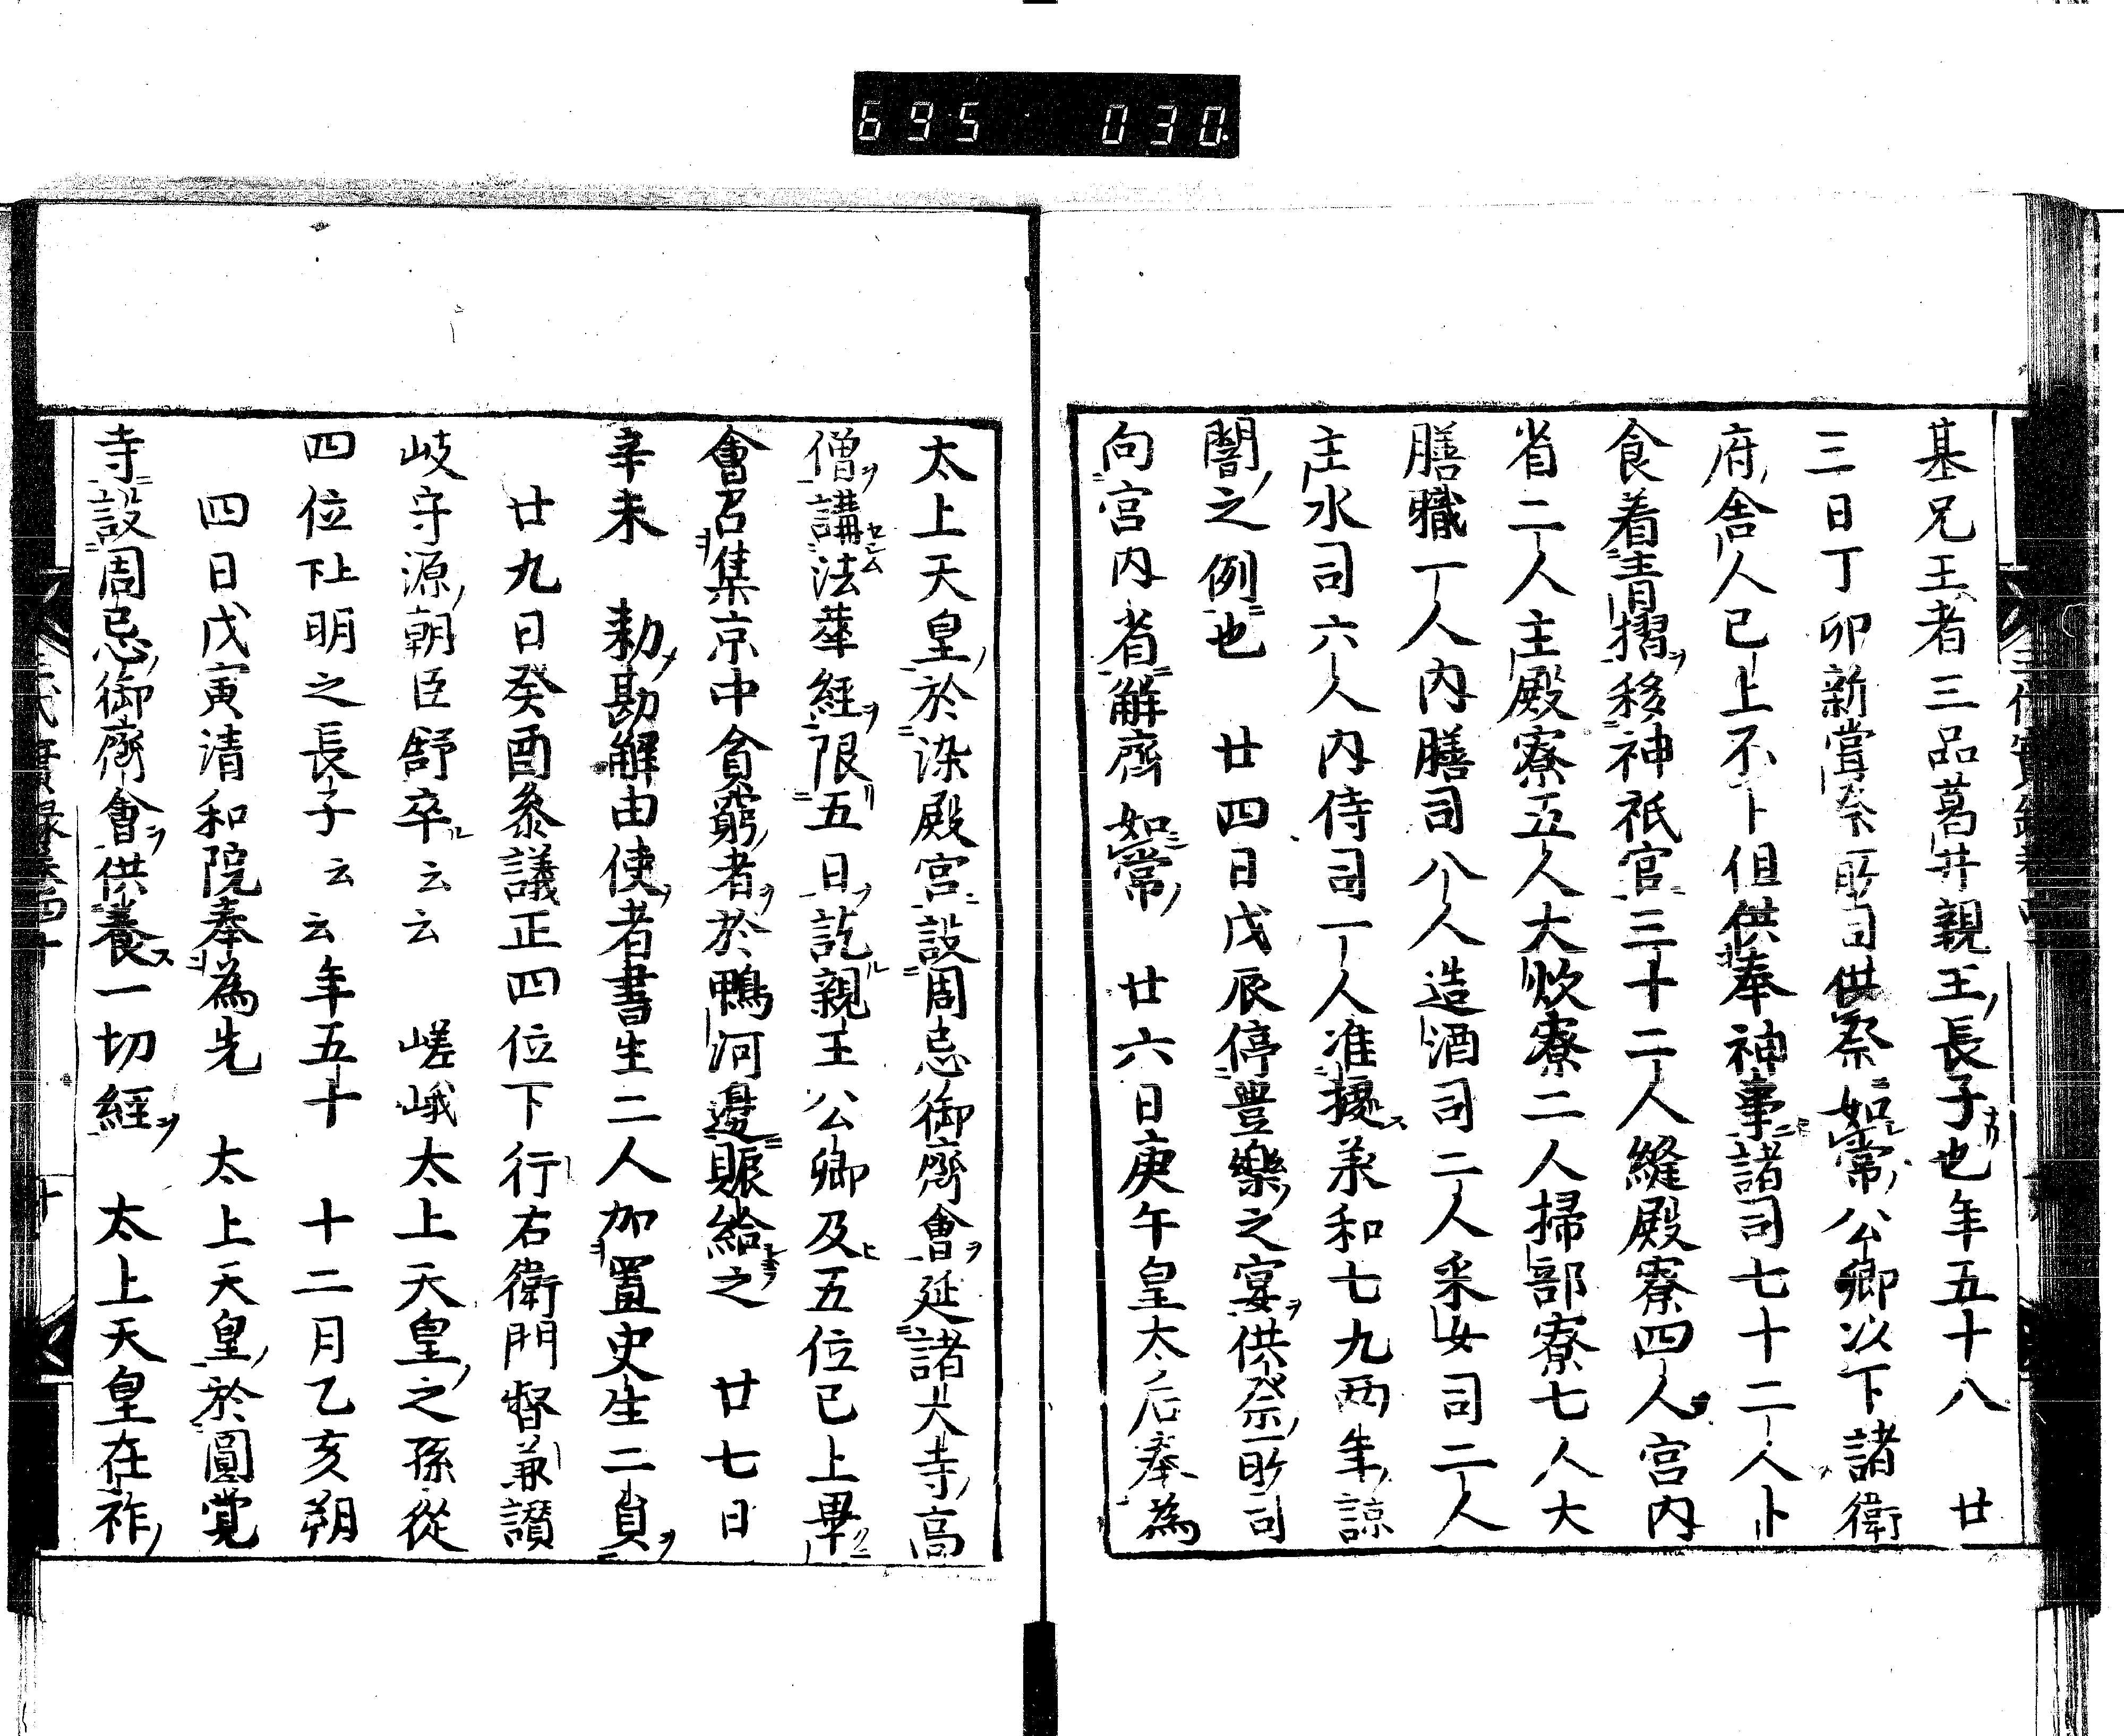 695 030
基兄王者三品葛井親王長子也年五十八　廿
三日丁卯新嘗祭所司供祭如常公卿以下諸衛
府舎人已上不卜但供奉神事諸司七十二人卜
食着青摺移神祇官三十二人縫殿寮四人宮内
省二人主殿寮五人大炊寮二人掃部寮七人大
膳職一人内膳司八人造酒司二人采女司二人
主水司六人内侍司一人准攄承和七九兩年諒
闇之例也　廿四日戊辰停豊樂之宴供祭所司
向宮内省解齊如常　廿六日庚午皇太后奉為
太上天皇於染殿宮設周忌御齊會延諸大寺高
僧講法華經限五日訖親王公卿及五位已上畢
會召集京中貧窮者於鴨河邊賑給之　廿七日
辛未　勅勘解由使者書生二人加置史生二員
廿九日癸酉叅議正四位下行右衛門督兼讃
岐守源朝臣舒卒云云　嵯峨太上天皇之孫從
四位上明之長子云云年五十　十二月乙亥朔
四日戊寅清和院奉為先　太上天皇於圓覚
寺設周忌御齊會供養一切經　太上天皇在祚